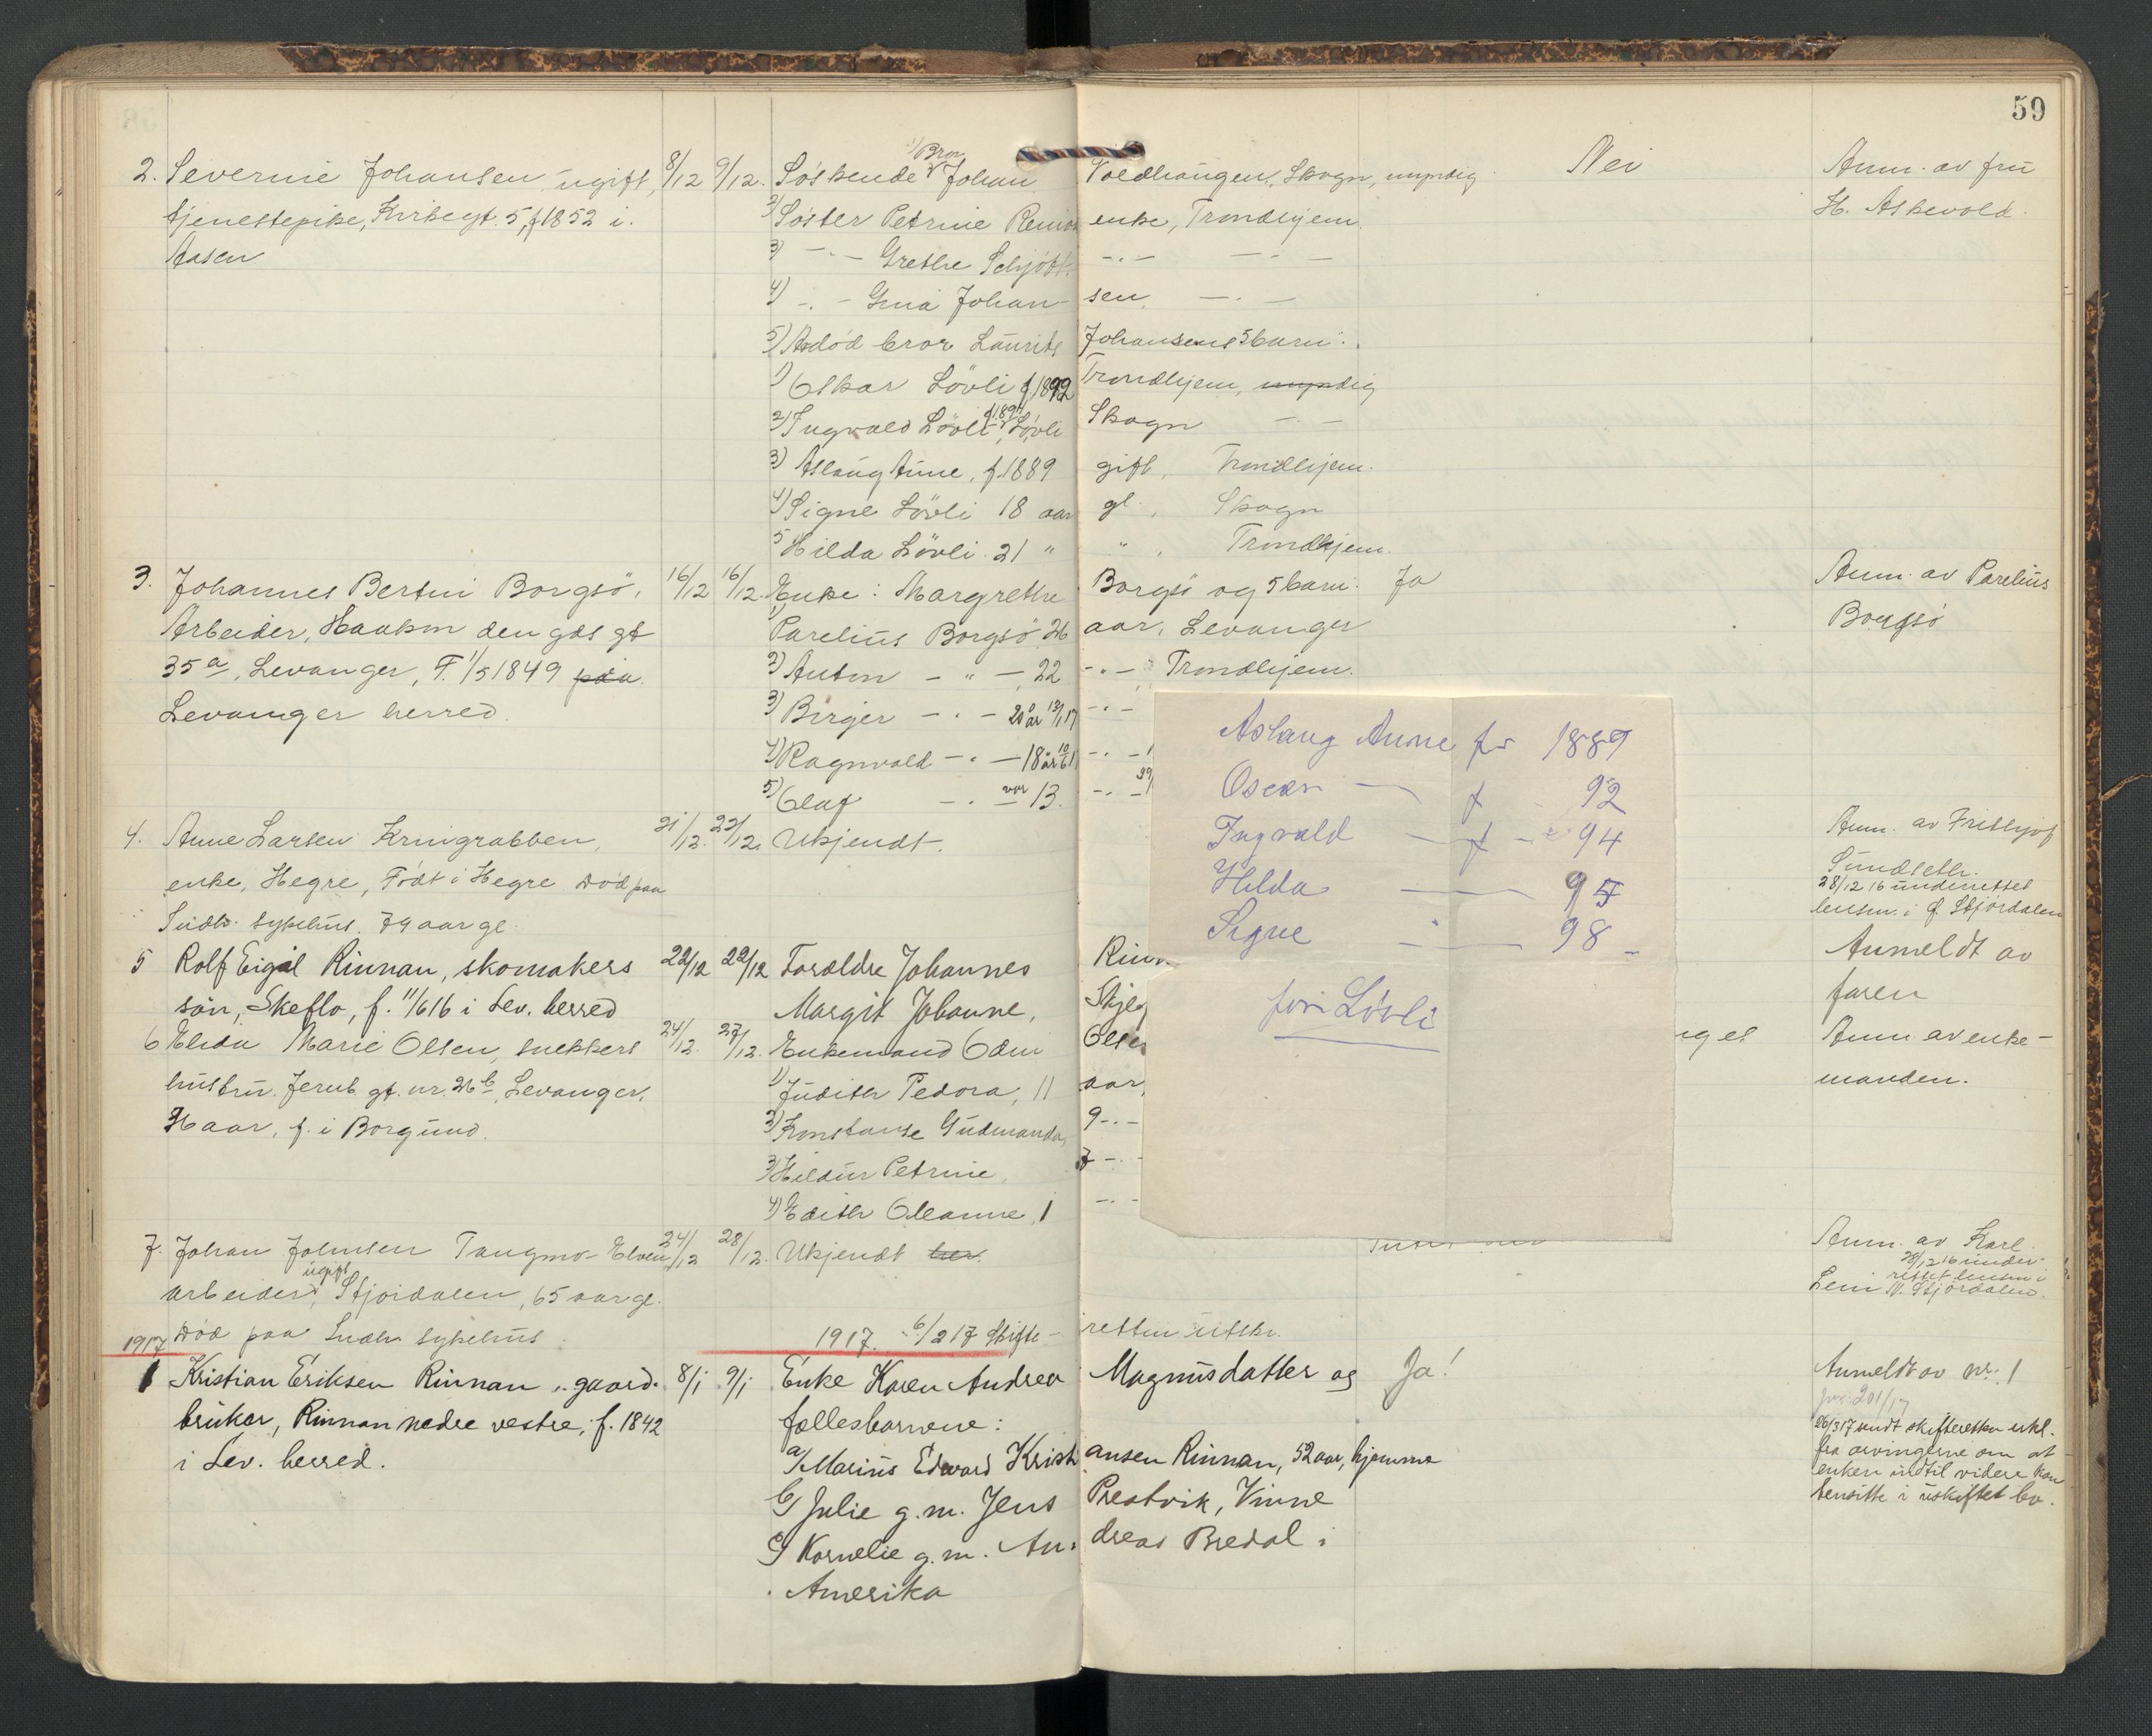 59
2. Severine Johansen, ugift, 8/12 9/12. Søskende 1) Bror Johan Voldhaugen, Skogn, myndig Nei Anm. av fru
tjenestepike, Kirkegt. 5, f 1852 i 2) Søster Petrine Renaa enke, Trondhjem. H. Askevold.
Aasen 3) — " — Grethe Schjøtt — " — — " —
4) — " — Gina Johansen, — " —
5) Avdød bror Laurits Johansens 5 barn:
1) Oskar Lövli f 1892 Trondhjem, myndig
2) Ingvald Lövli f 1894, Lövli Skogn — " —
3) Aslaug Aune, f. 1889 gift, Trondhjem.
4) Signe Lövli 18 aar gl., Skogn
5 Hilda Lövli 21 " " , Trondhjem.
3. Johannes Bertin Borgsö, 16/12 16/12. Enke: Margrethe Borgsö og 5 barn: Ja Anm. av Parelius
Arbeider, Haakon den gds gt 1) Parelius Borgsö 26 aar, Levanger Borgsö
35 a, Levanger, F. 1/5 1849 paa 2) Anton — " — , 22 — " — , Trondhjem.
Levanger herred. 3) Birger — " — 20 år 13/1 17 — " —
4) Ragnvald — " — 18 år 10/6 1 — " —
5) Olaf — " — var 13. — " —
4. Anne Larsen Kringrabben, 21/12. 22/12. Ukjendt. Anm. av Frithjof
enke, Hegre, Født i Hegre død paa Sundseth.
Indh. sykehus. 79 aar gl. 28/12 16 underrettet
lensm. i Ø. Stjørdalen
5 Rolf Eigil Rinnan, skomakers 22/12 22/12 Forældre Johannes Rinn Anmeldt av
sön, Skeflo, f. 11/6 16 i Lev. herred Margit Johanne, Skjeg faren
6 Elida Marie Olsen, snekkers 24/12. 27/12. Enkemand Odin Olsen nget Anm av enke-
hustru. Jernb. gt. nr. 26 b, Levanger, 1) Judith Pedora, 11 aar, manden.
36 aar, f. i Borgund. 2) Konstanse Gudmanda, 9 — " —
3) Hildur Petrine, 7 — " —
4) Edith Oleanne, 1 — " —
7. Johan Johnsen Tangmo-Elven 24/12 28/12. Ukjendt her. Anm. av Karl
arbeider, ugift, Stjørdalen, 65 aar gl. 28/12 16 under-
død paa Indh. sykehus. rettet lensm i
Lein N. Stjørdalen.
1917 1917. 6/2 17 Skifteretten utskr.
1 Kristian Eriksen Rinnan, gaard- 8/1 9/1 Enke Karen Andrea Magnusdatter og Ja! Anmeldt av nr. 1
bruker, Rinnan nedre vestre, f. 1842 fællesbarnene:
i Lev. herred. a/ Marius Edvard Kristiansen Rinnan, 52 aar, hjemme
b/ Julie g. m. Jens Prestvik, Vinne
c/ Kornelie g. m. Andreas Bredal i
Amerika
26/3 17 sendt skifteretten erkl.
fra arvingerne om at
enken indtil videre kan
hensitte i uskiftet bo.
Aslaug Aune fø 1889
Oscar — f — 92
Ingvald — f — 94
Hilda — 95
Signe — 98
før: Lövli